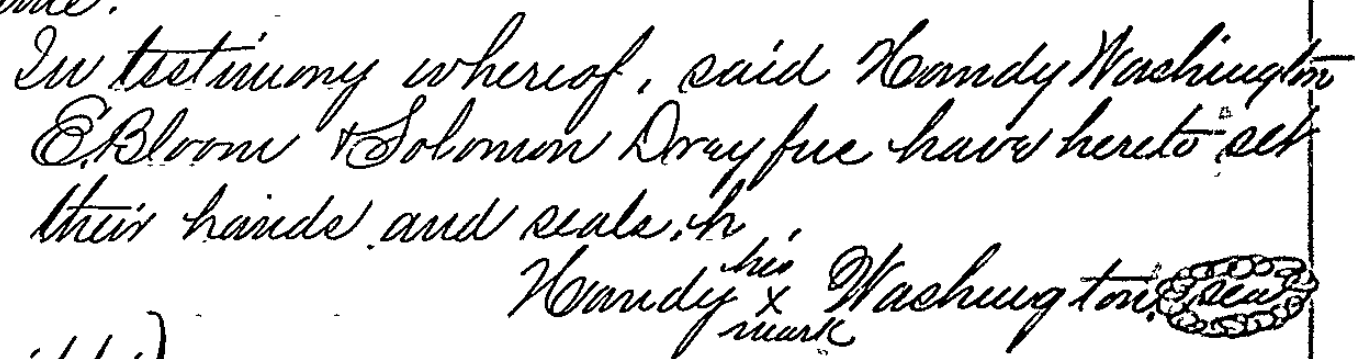 In testimony whereof, said Handy Washington
E. Bloom & Solomon Drayfus have hereto set
their hands and seals.
his
Handy x Washington. seal
mark